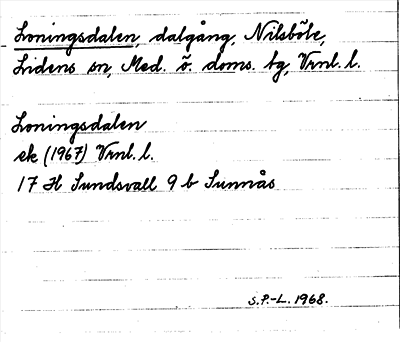 Loningsdalen, dalgång, Nilsböle,
Lidens sn, Med. ö. doms. tg, Vrnl. l.
Loningsdalen
ek (1967) Vrnl. l.
17 H Sundsvall 9 b Sunnås
S.P.-L. 1968.